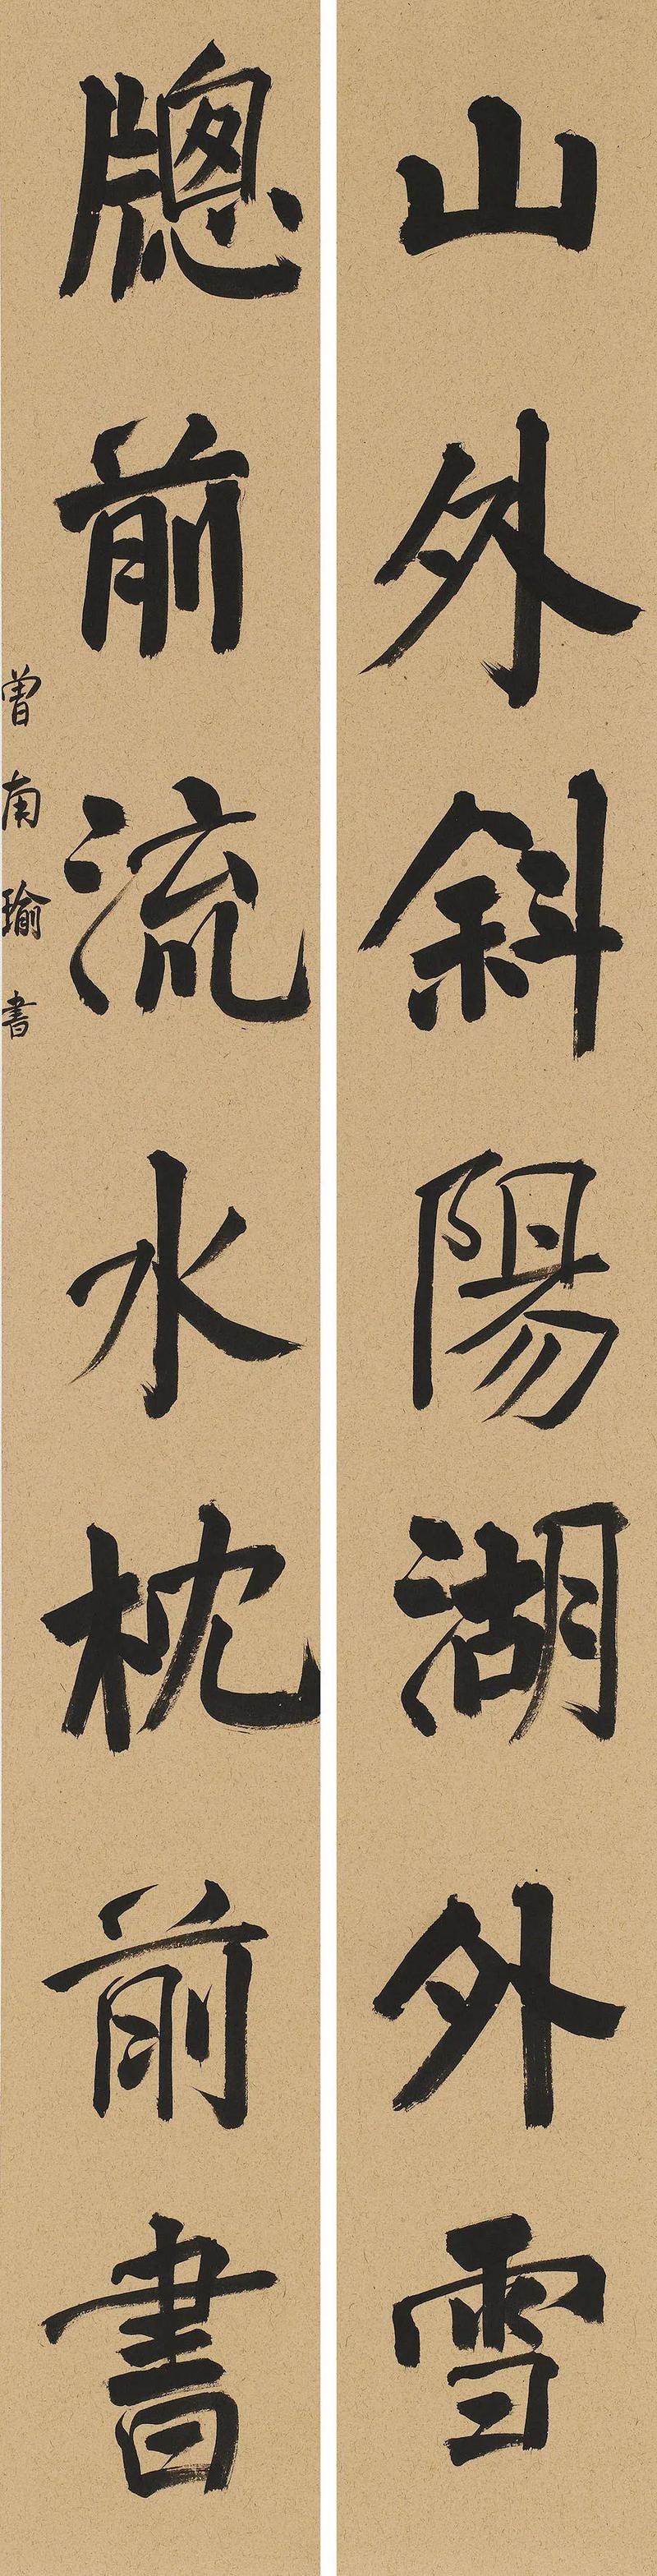 山外斜陽湖外雪
牕前流水枕前書
曾南瑜書